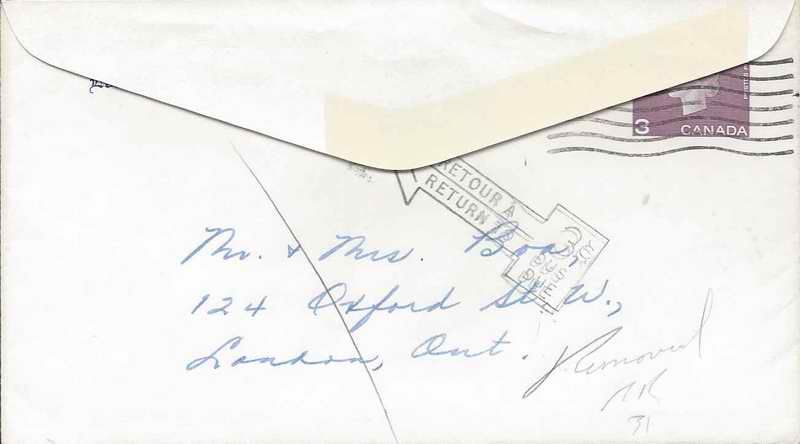 3 CANADA
RETOUR À
RETURN TO
Mr. & Mrs. Box,
124 Oxford St. W.,
London, Ont.
Removed
31